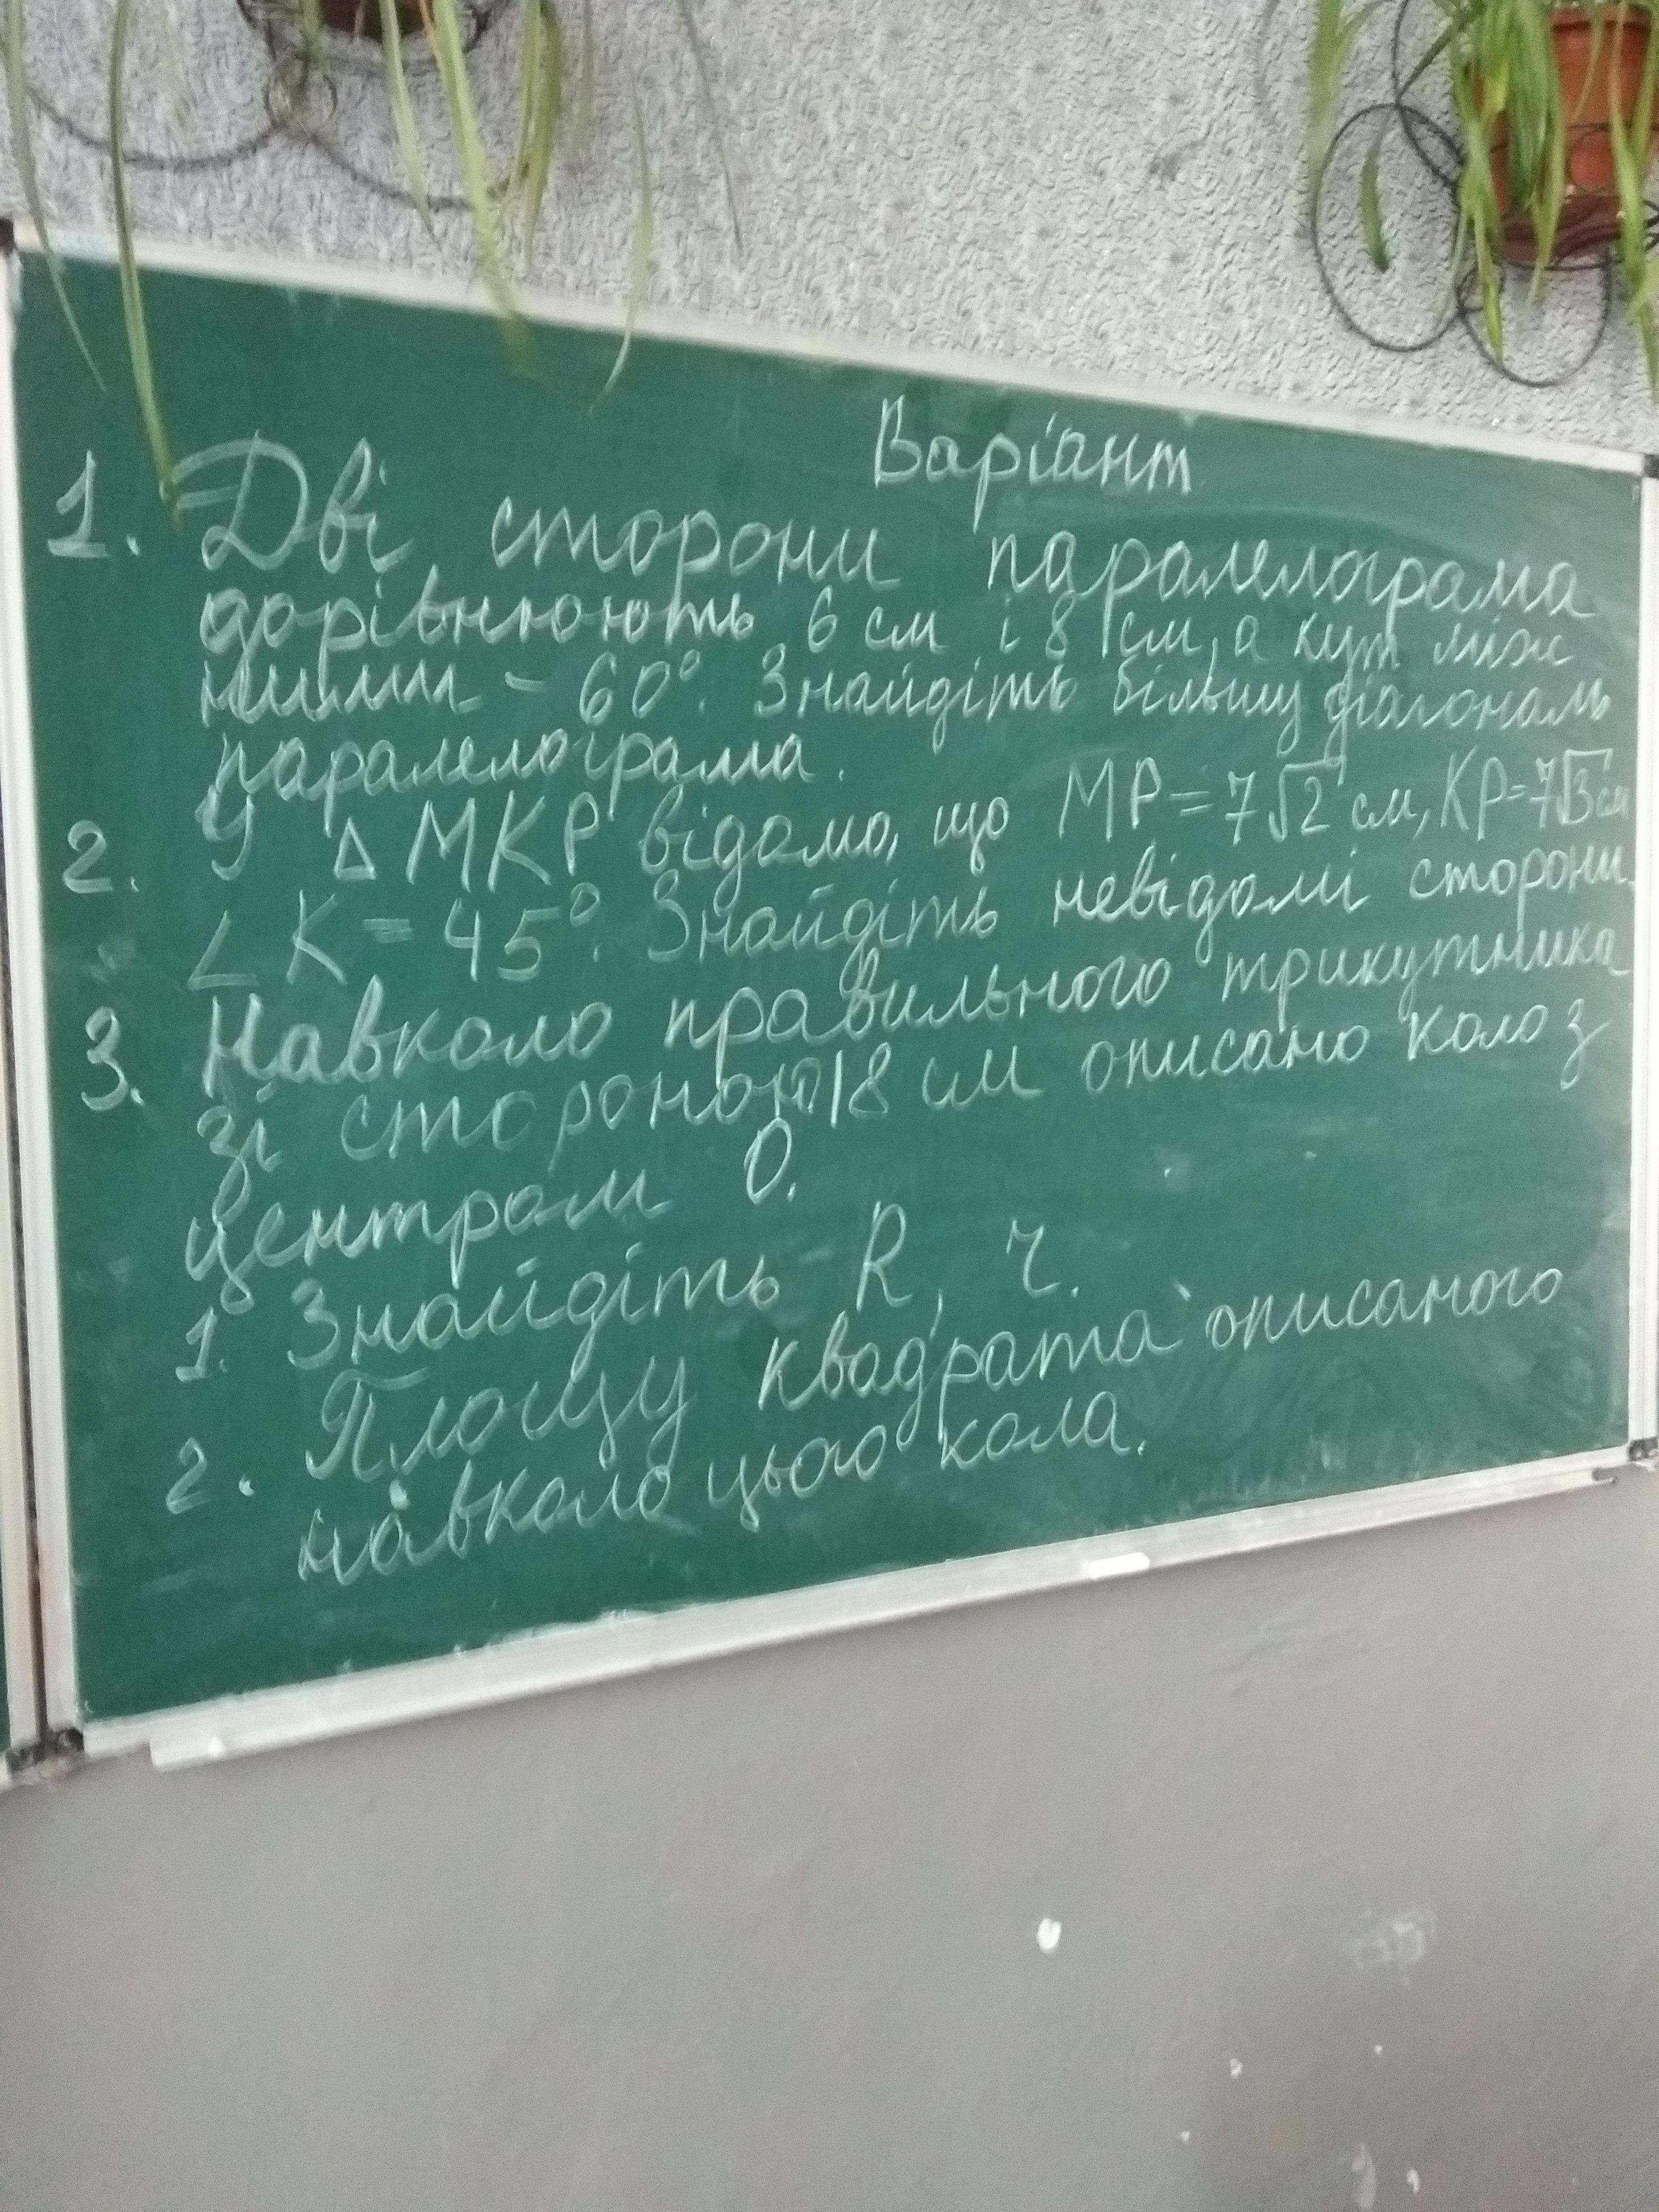 Варіант
1. Дві сторони паралелограма
дорівнюють 6 см і 8 см, а кут між
ними - 60°. Знайдіть більшу діагональ
паралелограма.
2. У △MKP відомо, що MP = 7√2 см, KP = 7√3 см
∠K = 45°. Знайдіть невідомі сторони.
3. Навколо правильного трикутника
зі стороною 18 см описано коло з
центром O.
1. Знайдіть R, r.
2. Площу квадрата описаного
навколо цього кола.